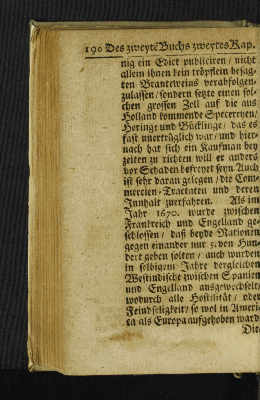 190 Des zweyte Buchs zweytes Kap.
nig ein Edict publiciren / nicht
allein ihnen kein tröpflein besag-
ten Branteweins verabfolgen-
zulassen / sondern setzte einen sol-
chen grossen Zoll auf die aus
Holland kommende Specereyen /
Heringe und Bücklinge / das es
fast unerträglich war / und hier-
nach hat sich ein Kaufman bey
zeiten zu richten will er anders
vor Schaden befreyet seyn. Auch
ist sehr daran gelegen / die Com-
mercien-Tractaten und deren
Innhalt zuerfahren. Als im
Jahr 1670. wurde zwischen
Franckreich und Engelland ge-
schlossen / daß beyde Nationen
gegen einander nur 5. von Hun-
dert geben solten / auch wurden
in selbigem Jahre dergleichen
Westindische zwischen Spanien
und Engelland ausgewechselt /
wodurch alle Hostilität / oder
Feindseligkeit / so wol in Ameri-
ca als Europa aufgehoben ward
Die